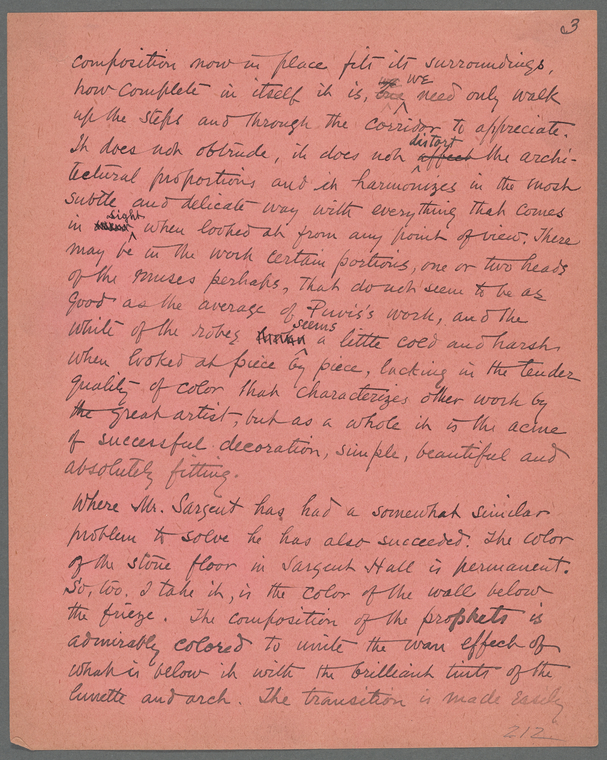 3
composition now in place fits its surroundings,
how complete in itself it is, we need only walk
up the steps and through the corridor to appreciate.
It does not obtrude, it does not affect distort the archi-
tectural proportions and it harmonizes in the most
subtle and delicate way with everything that comes
in sight when looked at from any point of view. There
may be in the work certain portions, one or two heads
of the muses perhaps, that do not seem to be as
good as the average of Puvis's work, and the
white of the robes seems a little cold and harsh
when looked at piece by piece, lacking in the tender
quality of color that characterizes other work by
the great artist, but as a whole it is the acme
of successful decoration, simple, beautiful and
absolutely fitting.
Where Mr. Sargent has had a somewhat similar
problem to solve he has also succeeded. The color
of the stone floor in Sargent Hall is permanent.
So, too, I take it, is the color of the wall below
the frieze. The composition of the prophets is
admirably colored to unite the wan effect of
what is below it with the brilliant tints of the
lunette and arch. The transition is made easily
212